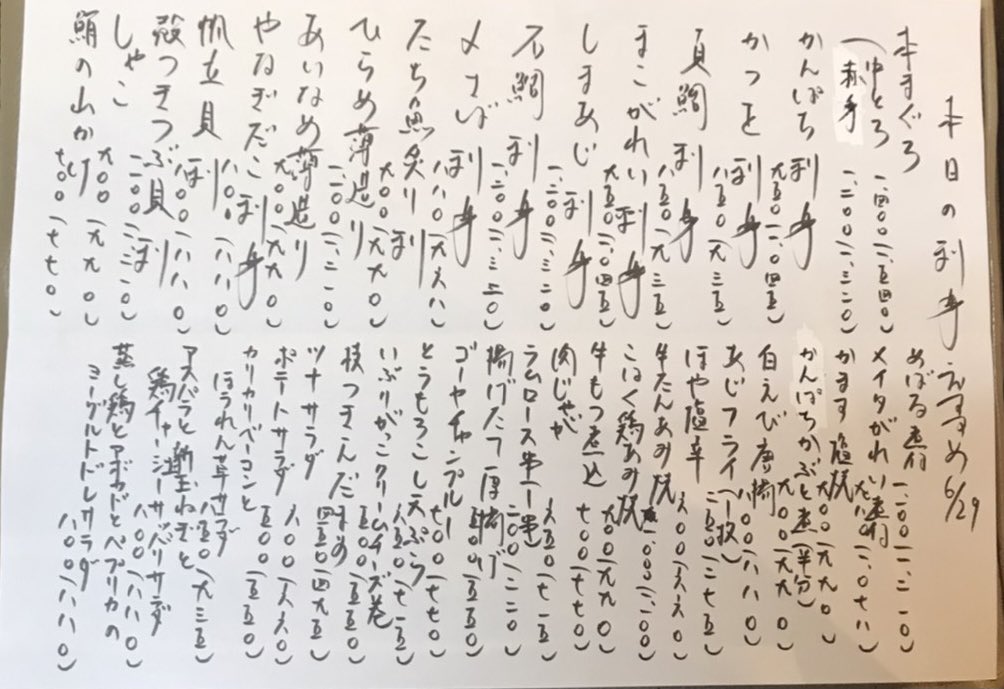 本日の刺身 おすすめ 6/29
本まぐろ
(中とろ 一、四〇〇(一、五四〇)
赤身 一、二〇〇(一、三二〇)
かんぱち 刺身 九五〇(一、〇四五)
かつを 刺身 八五〇(九三五)
真鯛 刺身 八五〇(九三五)
まこがれい 刺身 九五〇(一、〇四五)
しまあじ 刺身 一、二〇〇(一、三二〇)
石鯛 刺身 一、二〇〇(一、三二〇)
〆さば 刺身 八八〇(九六八)
たち魚炙り 刺 九〇〇(九九〇)
ひらめ薄造り 一、二〇〇(一、三二〇)
あいなめ薄造り 九〇〇(九九〇)
やなぎだこ 刺身 八〇〇(八八〇)
帆立貝 刺 八〇〇(八八〇)
殻つきつぶ貝 刺 一、二〇〇(一、三二〇)
しゃこ 九〇〇(九九〇)
鮪の山かけ 七〇〇(七七〇)
めばる煮付 一、一〇〇(一、二一〇)
メイタがれい煮付 九八〇(一、〇七八)
かます塩焼 九〇〇(九九〇)
かんぱちかぶと煮(半分) 九〇〇(九九〇)
白えび唐揚 八〇〇(八八〇)
あじフライ(一枚) 二五〇(二七五)
ほや塩辛 六〇〇(六六〇)
牛たんあみ焼 一、〇〇〇(一、一〇〇)
こはく鶏あみ焼 九〇〇(九九〇)
牛もつ煮込 七〇〇(七七〇)
肉じゃが 六五〇(七一五)
ラムロース串(一串)
揚げたて厚揚げ 五〇〇(五五〇)
ゴーヤチャンプルー 七〇〇(七七〇)
とうもろこし天ぷら 六五〇(七一五)
いぶりがっこクリームチーズ巻
枝つきえだまめ 五〇〇(五五〇)
ツナサラダ 四五〇(四九五)
ポテトサラダ 六〇〇(六六〇)
カリカリベーコンと
ほうれん草サラダ 八五〇(九三五)
アスパラと新玉ねぎと
鶏チャーシューサッパリサラダ 八〇〇(八八〇)
蒸し鶏とアボカドとパプリカの
ヨーグルトドレサラダ 八〇〇(八八〇)